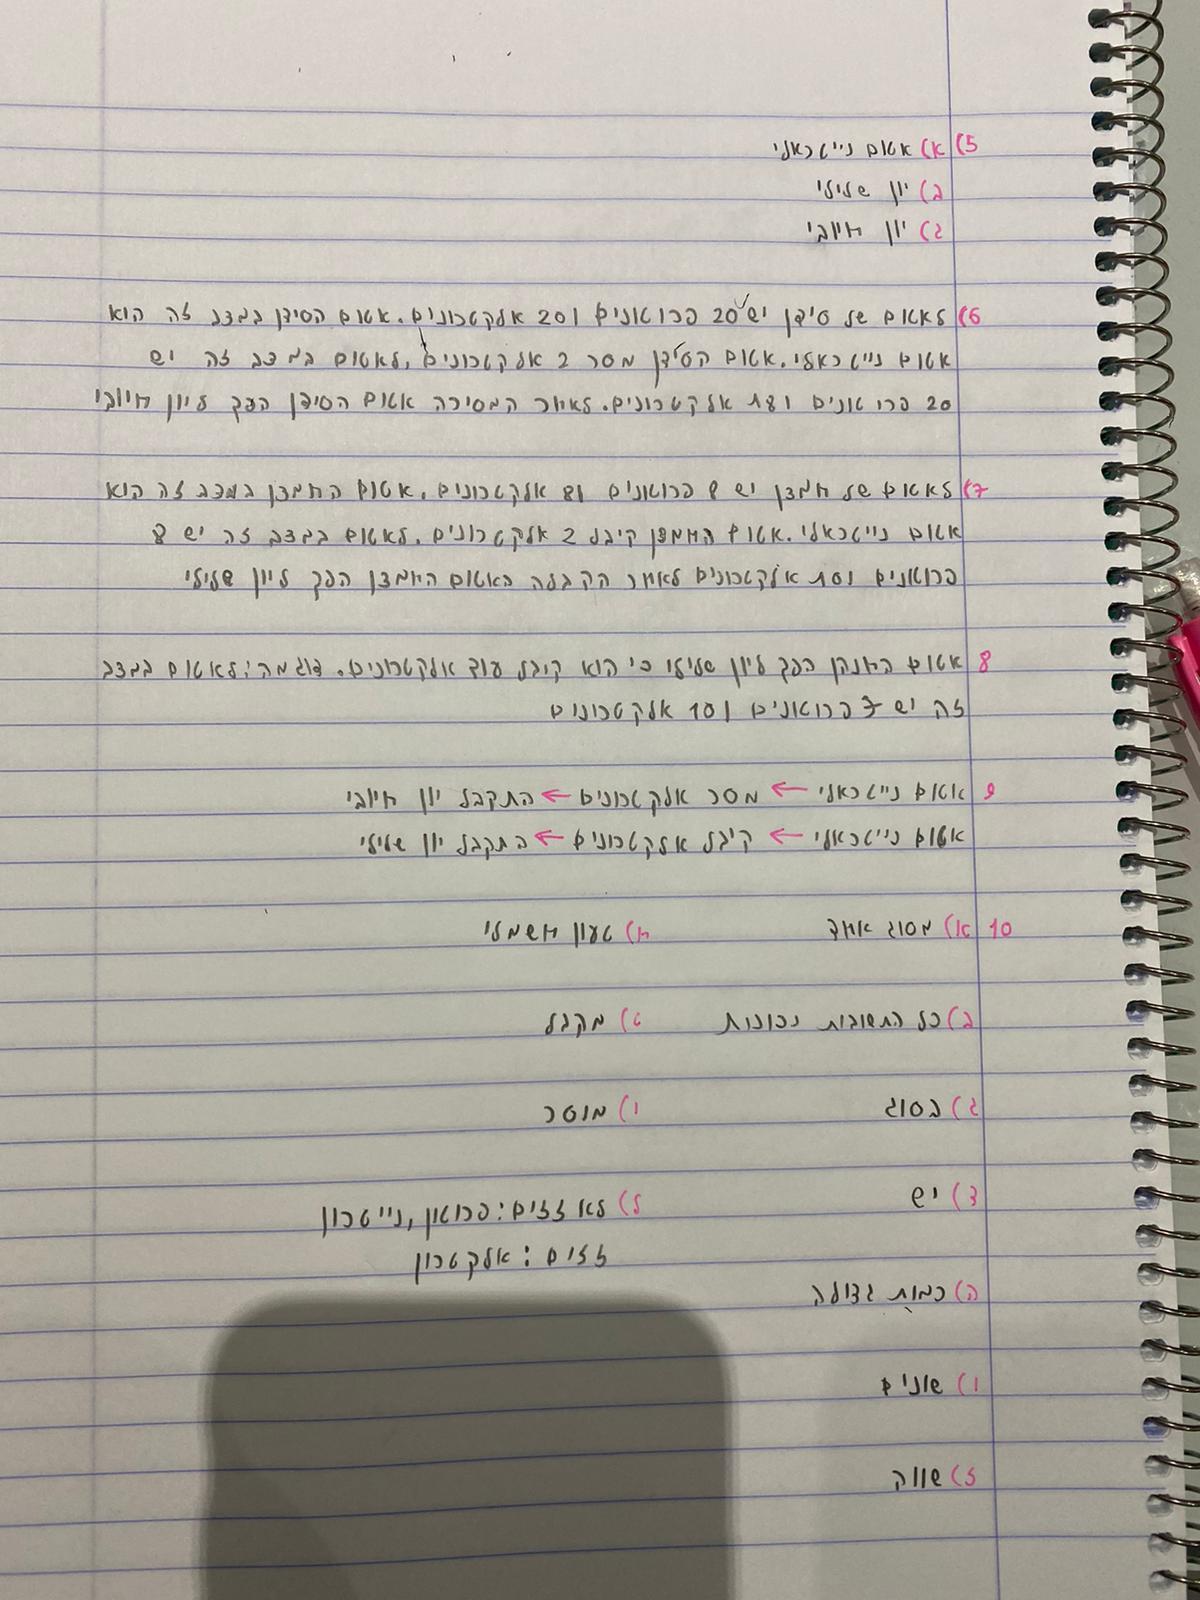 5) א) אטום נייטראלי
ב) יון שלילי
ג) יון חיובי
6) לאטום של סידן יש 20 פרוטונים ו20 אלקטרונים. אטום הסידן במצב זה הוא
אטום נייטראלי. אטום הסידן מסר 2 אלקטרונים, לאטום במצב זה יש
20 פרוטונים ו18 אלקטרונים. לאחר המסירה אטום הסידן הפך ליון חיובי
7) לאטום של חמצן יש 8 פרוטונים ו8 אלקטרונים. אטום החמצן במצב זה הוא
אטום נייטראלי. אטום החמצן קיבל 2 אלקטרונים. לאטום במצב זה יש 8
פרוטונים ו10 אלקטרונים לאחר הקבלה האטום החמצן הפך ליון שלילי
8 אטום החנקן הפך ליון שלילי כי הוא קיבל עוד אלקטרונים. דוגמה: לאטום במצב
זה יש 7 פרוטונים ו10 אלקטרונים
9 אטום נייטראלי ← מסר אלקטרונים ← התקבל יון חיובי
אטום נייטראלי ← קיבל אלקטרונים ← התקבל יון שלילי
10 א) מסוג אחד ח) טעון חשמלי
ב) כל התשובות נכונות ט) מקבל
ג) בסוג י) מוסר
ד) יש ל) לא זזים: פרוטון, נייטרון
זזים: אלקטרון
ה) כמות גדולה
ו) שונים
ז) שווה